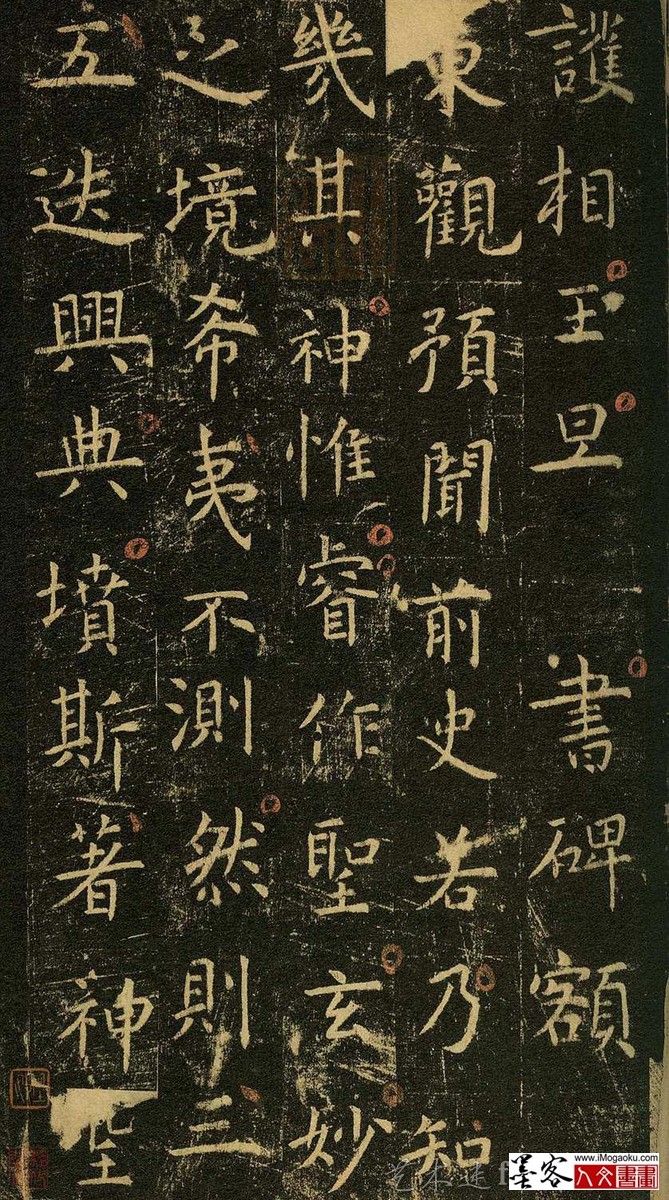 護相王旦書碑額
東觀預聞前史若乃知
幾其神惟睿作聖玄妙
之境希夷不測然則三
五迭興典墳斯著神聖
墨客
www.iMogaoku.com
人文書畫